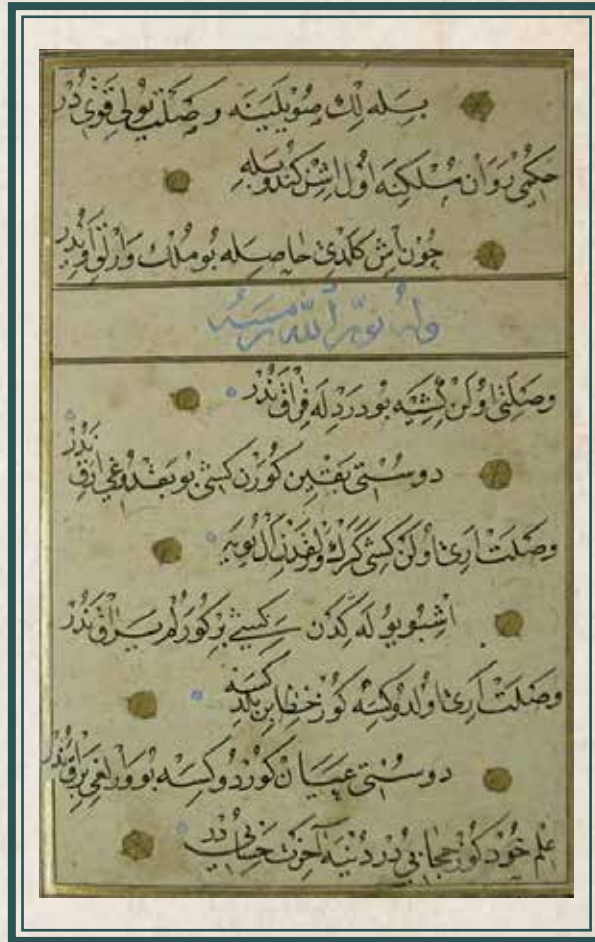 بيله لك صويلينه وصلت يولى قنى در
حكمى روان ملكنه اول ايشن كندو بيله
چون ايش كلدى حاصله بو ملك وارلق
وله نور الله مرسه
وصلتى اولن كشيه بو درد له فراق ندر
دوستى يقين كورن كشى بو بقدوغى ايراق ندر
وصلت ارى اولن كشى كرك
اشبو يوله كدن كشى بر كورلم يراق ندر
وصلت ارى اولدوكسه كور خطابن بلدوكسه
دوستى عيان كوردوكسه بو وارلغى براق ندر
علم خود كوز حجابى در دنيه آخرت حسابى در